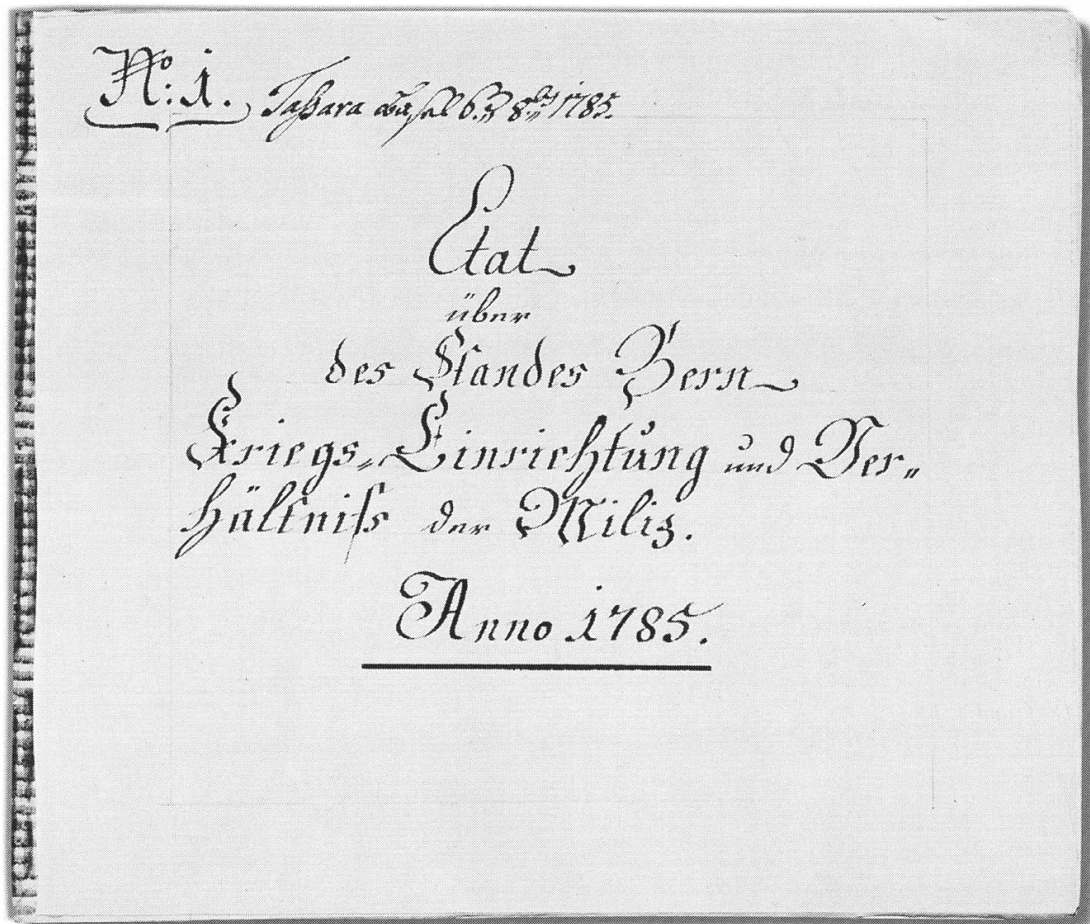 No: 1. Basel 6.ten 8br 1785.
Etat
über
des Standes Bern
Kriegs=Einrichtung und Ver=
hältniss der Miliz.
Anno 1785.